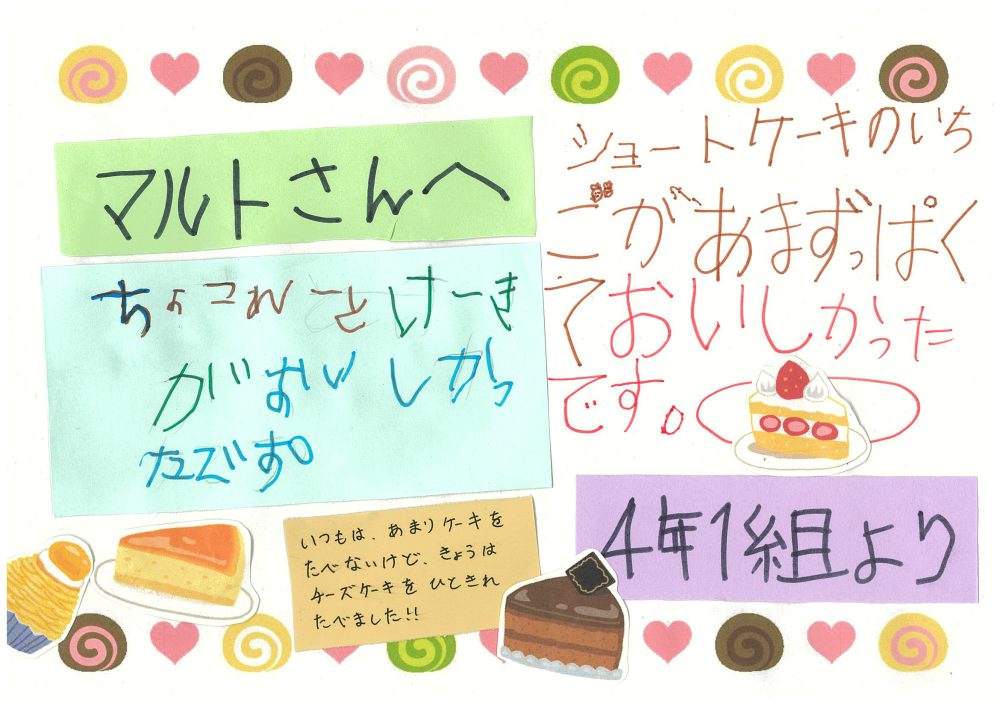 マルトさんへ
ちょこれーとけーき
がおいしかっ
たです。
シュートケーキのいち
ごがあまずっぱく
ておいしかった
です。
いつもは、あまりケーキを
たべないけど、きょうは
チーズケーキをひときれ
たべました!!
4年1組より